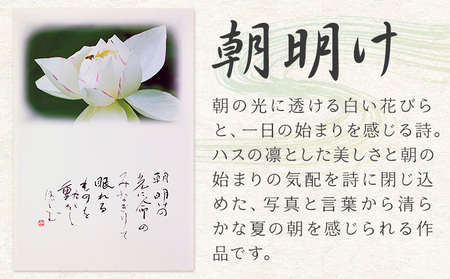 朝明け
朝の光に透ける白い花びら
と、一日の始まりを感じる詩。
ハスの凛とした美しさと朝の
始まりの気配を詩に閉じ込
めた、写真と言葉から清ら
かな夏の朝を感じられる作
品です。
朝明け
光に命の
みなぎりて
眠れる
ものを
動かし